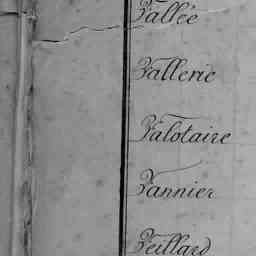 Vallée
Vallerie
Valotaire
Vannier
Veillard